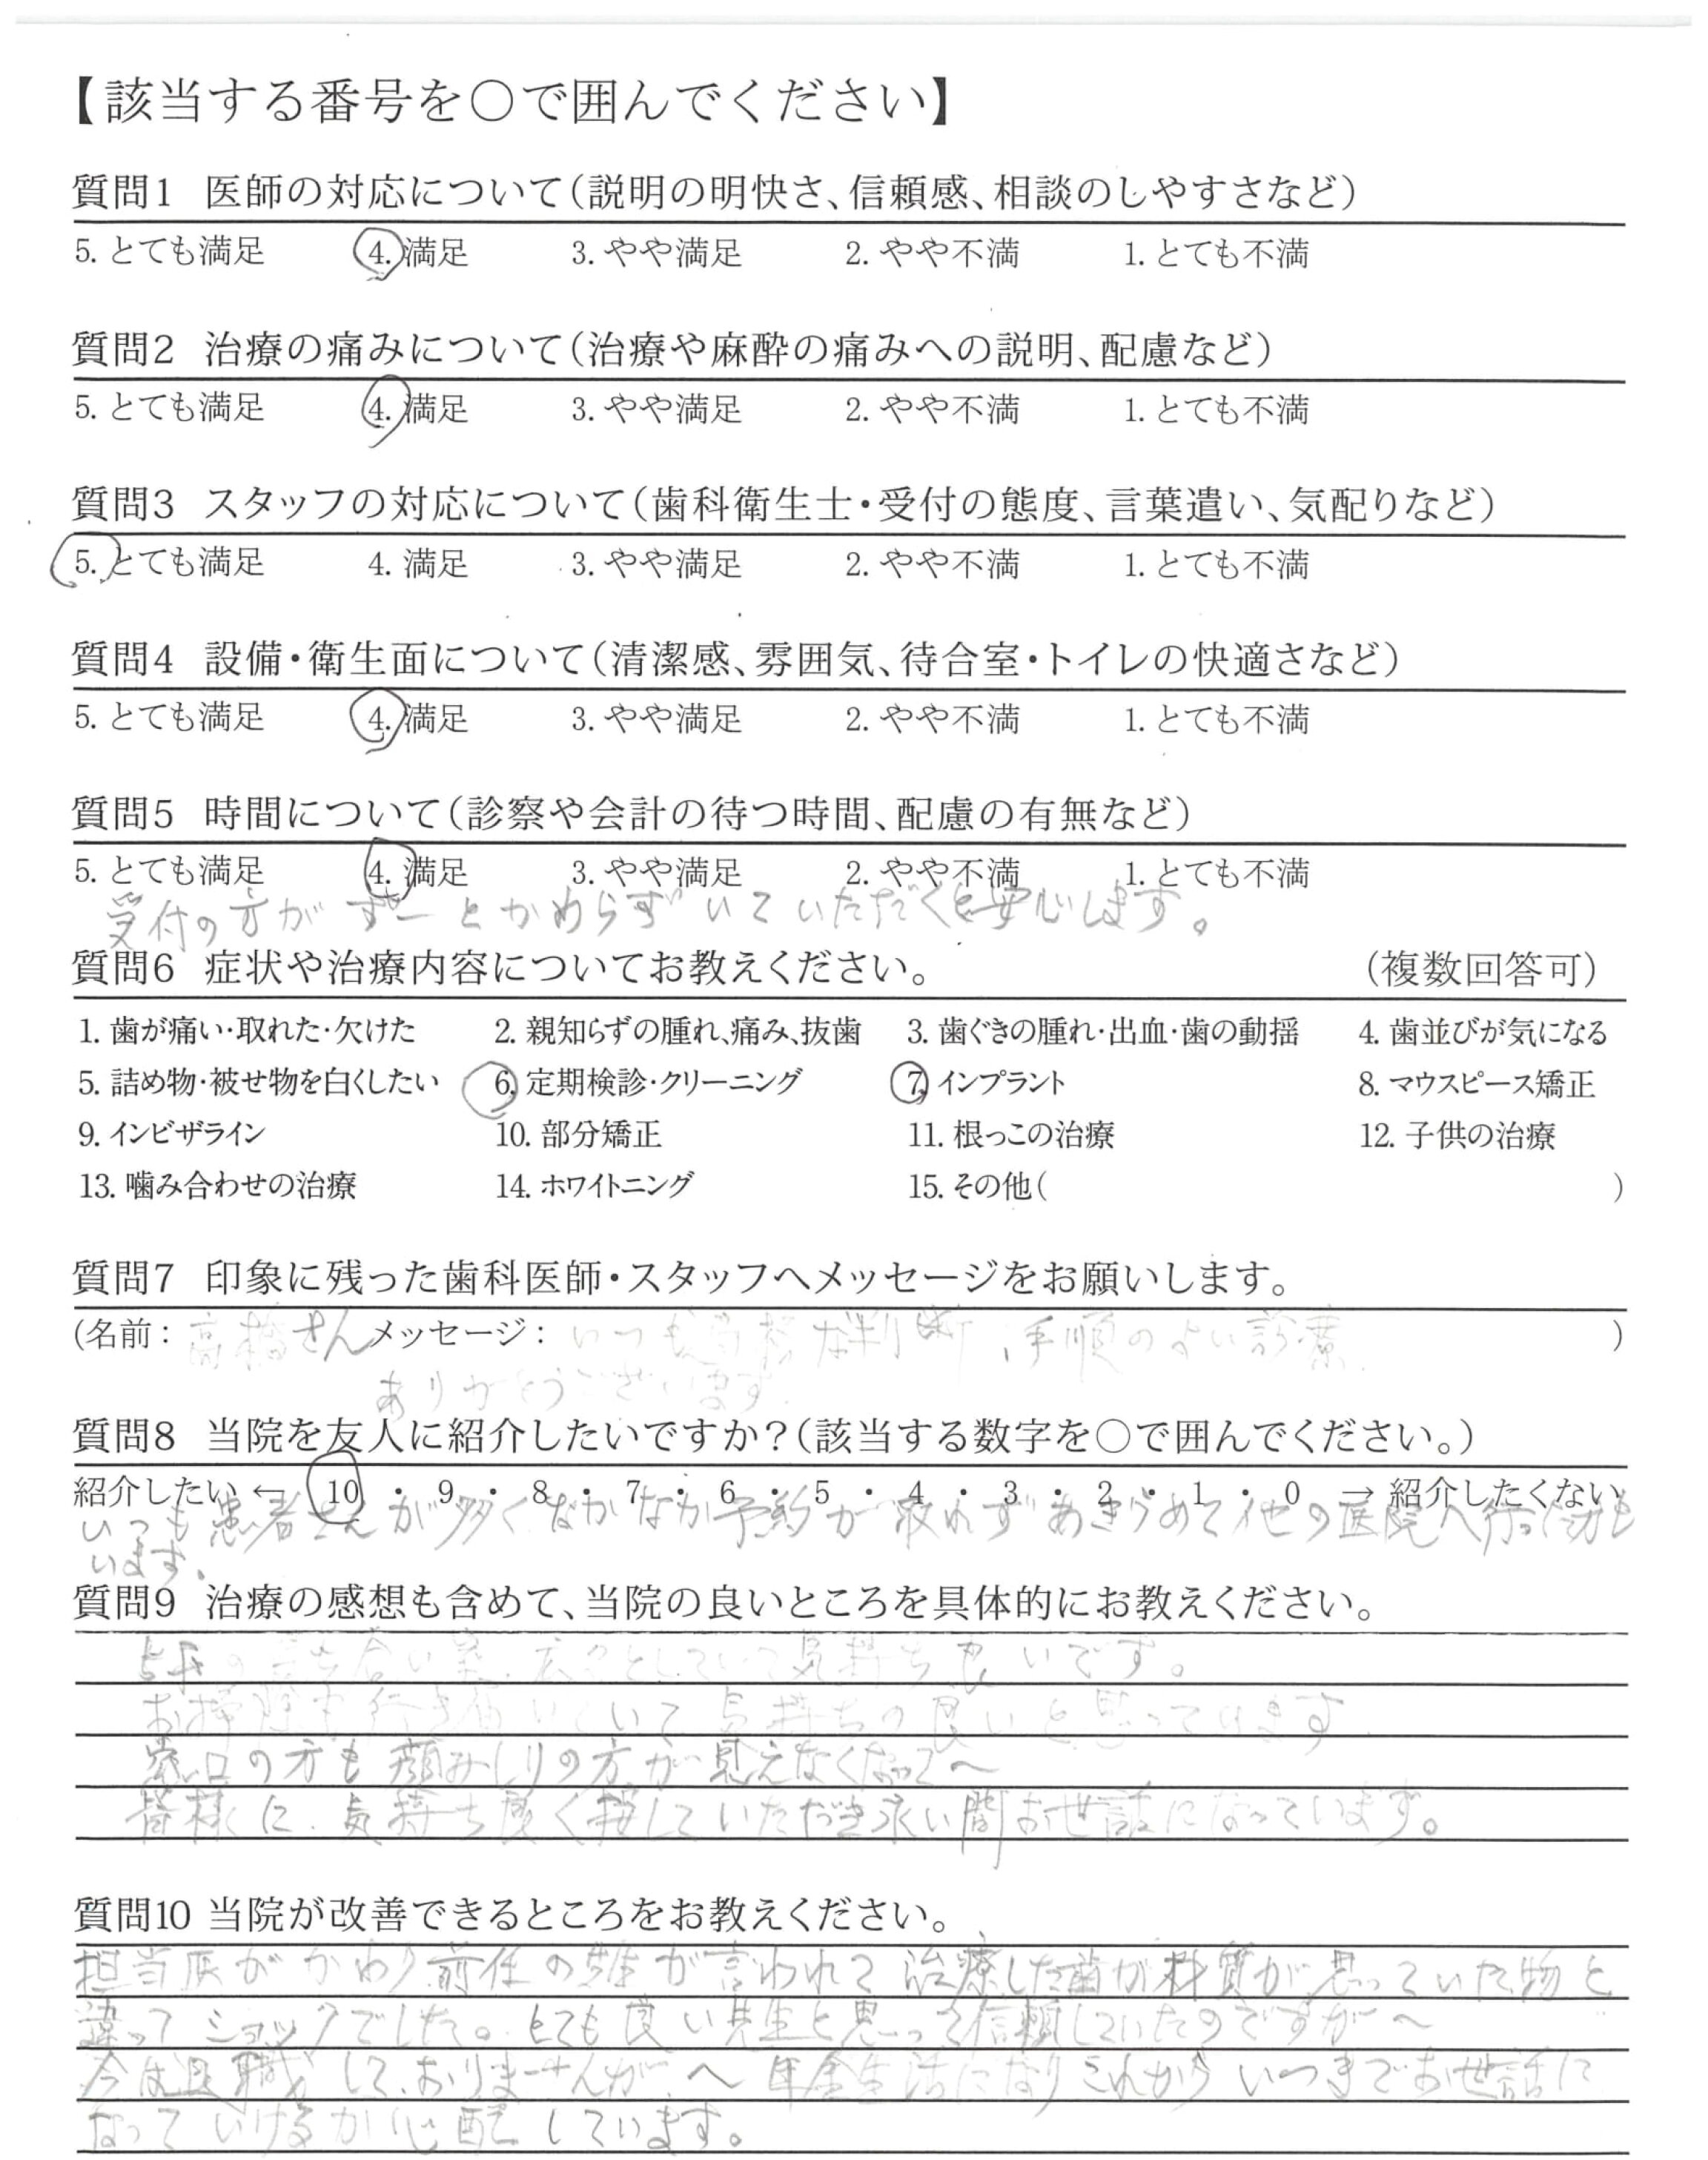 【該当する番号を○で囲んでください】
質問1 医師の対応について(説明の明快さ、信頼感、相談のしやすさなど)
5. とても満足 4. 満足 3. やや満足 2. やや不満 1. とても不満
質問2 治療の痛みについて(治療や麻酔の痛みへの説明、配慮など)
5. とても満足 4. 満足 3. やや満足 2. やや不満 1. とても不満
質問3 スタッフの対応について(歯科衛生士・受付の態度、言葉遣い、気配りなど)
5. とても満足 4. 満足 3. やや満足 2. やや不満 1. とても不満
質問4 設備・衛生面について(清潔感、雰囲気、待合室・トイレの快適さなど)
5. とても満足 4. 満足 3. やや満足 2. やや不満 1. とても不満
質問5 時間について(診察や会計の待つ時間、配慮の有無など)
5. とても満足 4. 満足 3. やや満足 2. やや不満 1. とても不満
受付の方がずーとかわらずいていただくと安心します。
質問6 症状や治療内容についてお教えください。 (複数回答可)
1. 歯が痛い・取れた・欠けた 2. 親知らずの腫れ、痛み、抜歯 3. 歯ぐきの腫れ・出血・歯の動揺 4. 歯並びが気になる
5. 詰め物・被せ物を白くしたい 6. 定期検診・クリーニング 7. インプラント 8. マウスピース矯正
9. インビザライン 10. 部分矯正 11. 根っこの治療 12. 子供の治療
13. 噛み合わせの治療 14. ホワイトニング 15. その他( )
質問7 印象に残った歯科医師・スタッフへメッセージをお願いします。
(名前: 高橋さん メッセージ: いつも な判断、手順のよい診療 )
ありがとうございます
質問8 当院を友人に紹介したいですか?(該当する数字を○で囲んでください。)
紹介したい ← 10 ・ 9 ・ 8 ・ 7 ・ 6 ・ 5 ・ 4 ・ 3 ・ 2 ・ 1 ・ 0 → 紹介したくない
いつも患者さんが多くなかなか予約が取れずあきらめて他の医院へ行った方も
います。
質問9 治療の感想も含めて、当院の良いところを具体的にお教えください。
の待合い室、広々としていて気持ち良いです。
お掃除も行き届いていて気持ちの良いと思ってます
窓口の方も顔みしりの方が見えなくなって〜
皆様に、気持ち良く接していただき永い間お世話になっています。
質問10 当院が改善できるところをお教えください。
担当医がかわり前任の先生が言われて治療した歯が材質が思っていた物と
違ってショックでした。とても良い先生と思って信頼していたのですが〜
今は退職しておりませんが、〜年金生活になりこれからいつまでお世話に
なっていけるか心配しています。